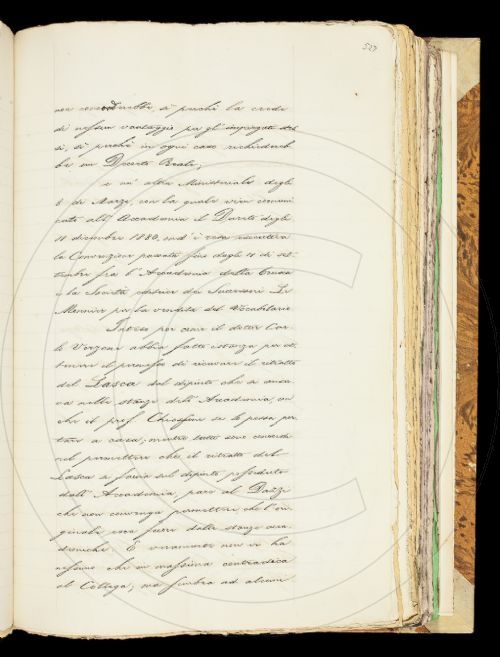 527
non concederebbe sì perchè la crede
di nessun vantaggio per gl'impiegati stes
si, sì perchè in ogni caso richiedereb
be un Decreto Reale;
e un'altra Ministeriale degli
8 di Marzo, con la quale vien comuni
cato all'Accademia il Decreto degli
11 dicembre 1880, ond'è resa esecutiva
la Convenzione passata fino dagli 11 di set
tembre fra l'Accademia della Crusca
e la Società dei Successori Le
Monnier per la vendita del Vocabolario
Inteso poi come il dottor Car
lo Verzone abbia fatto istanza per ot
tenere il permesso di ricavare il ritratto
del Lasca dal dipinto che si conser
va nelle stanze dell'Accademia, on
che il prof. Chiossone se lo possa por
tare a casa; mentre tutti sono concordi
nel permettere che il ritratto del
Lasca si faccia sul dipinto posseduto
dall'Accademia, pare al Dazzi
che non convenga permettere che l'ori
ginale esca fuori dalle stanze acca
demiche. E veramente non vi ha
nessuno che in massima contradica
al Collega; ma sembra ad alcuni